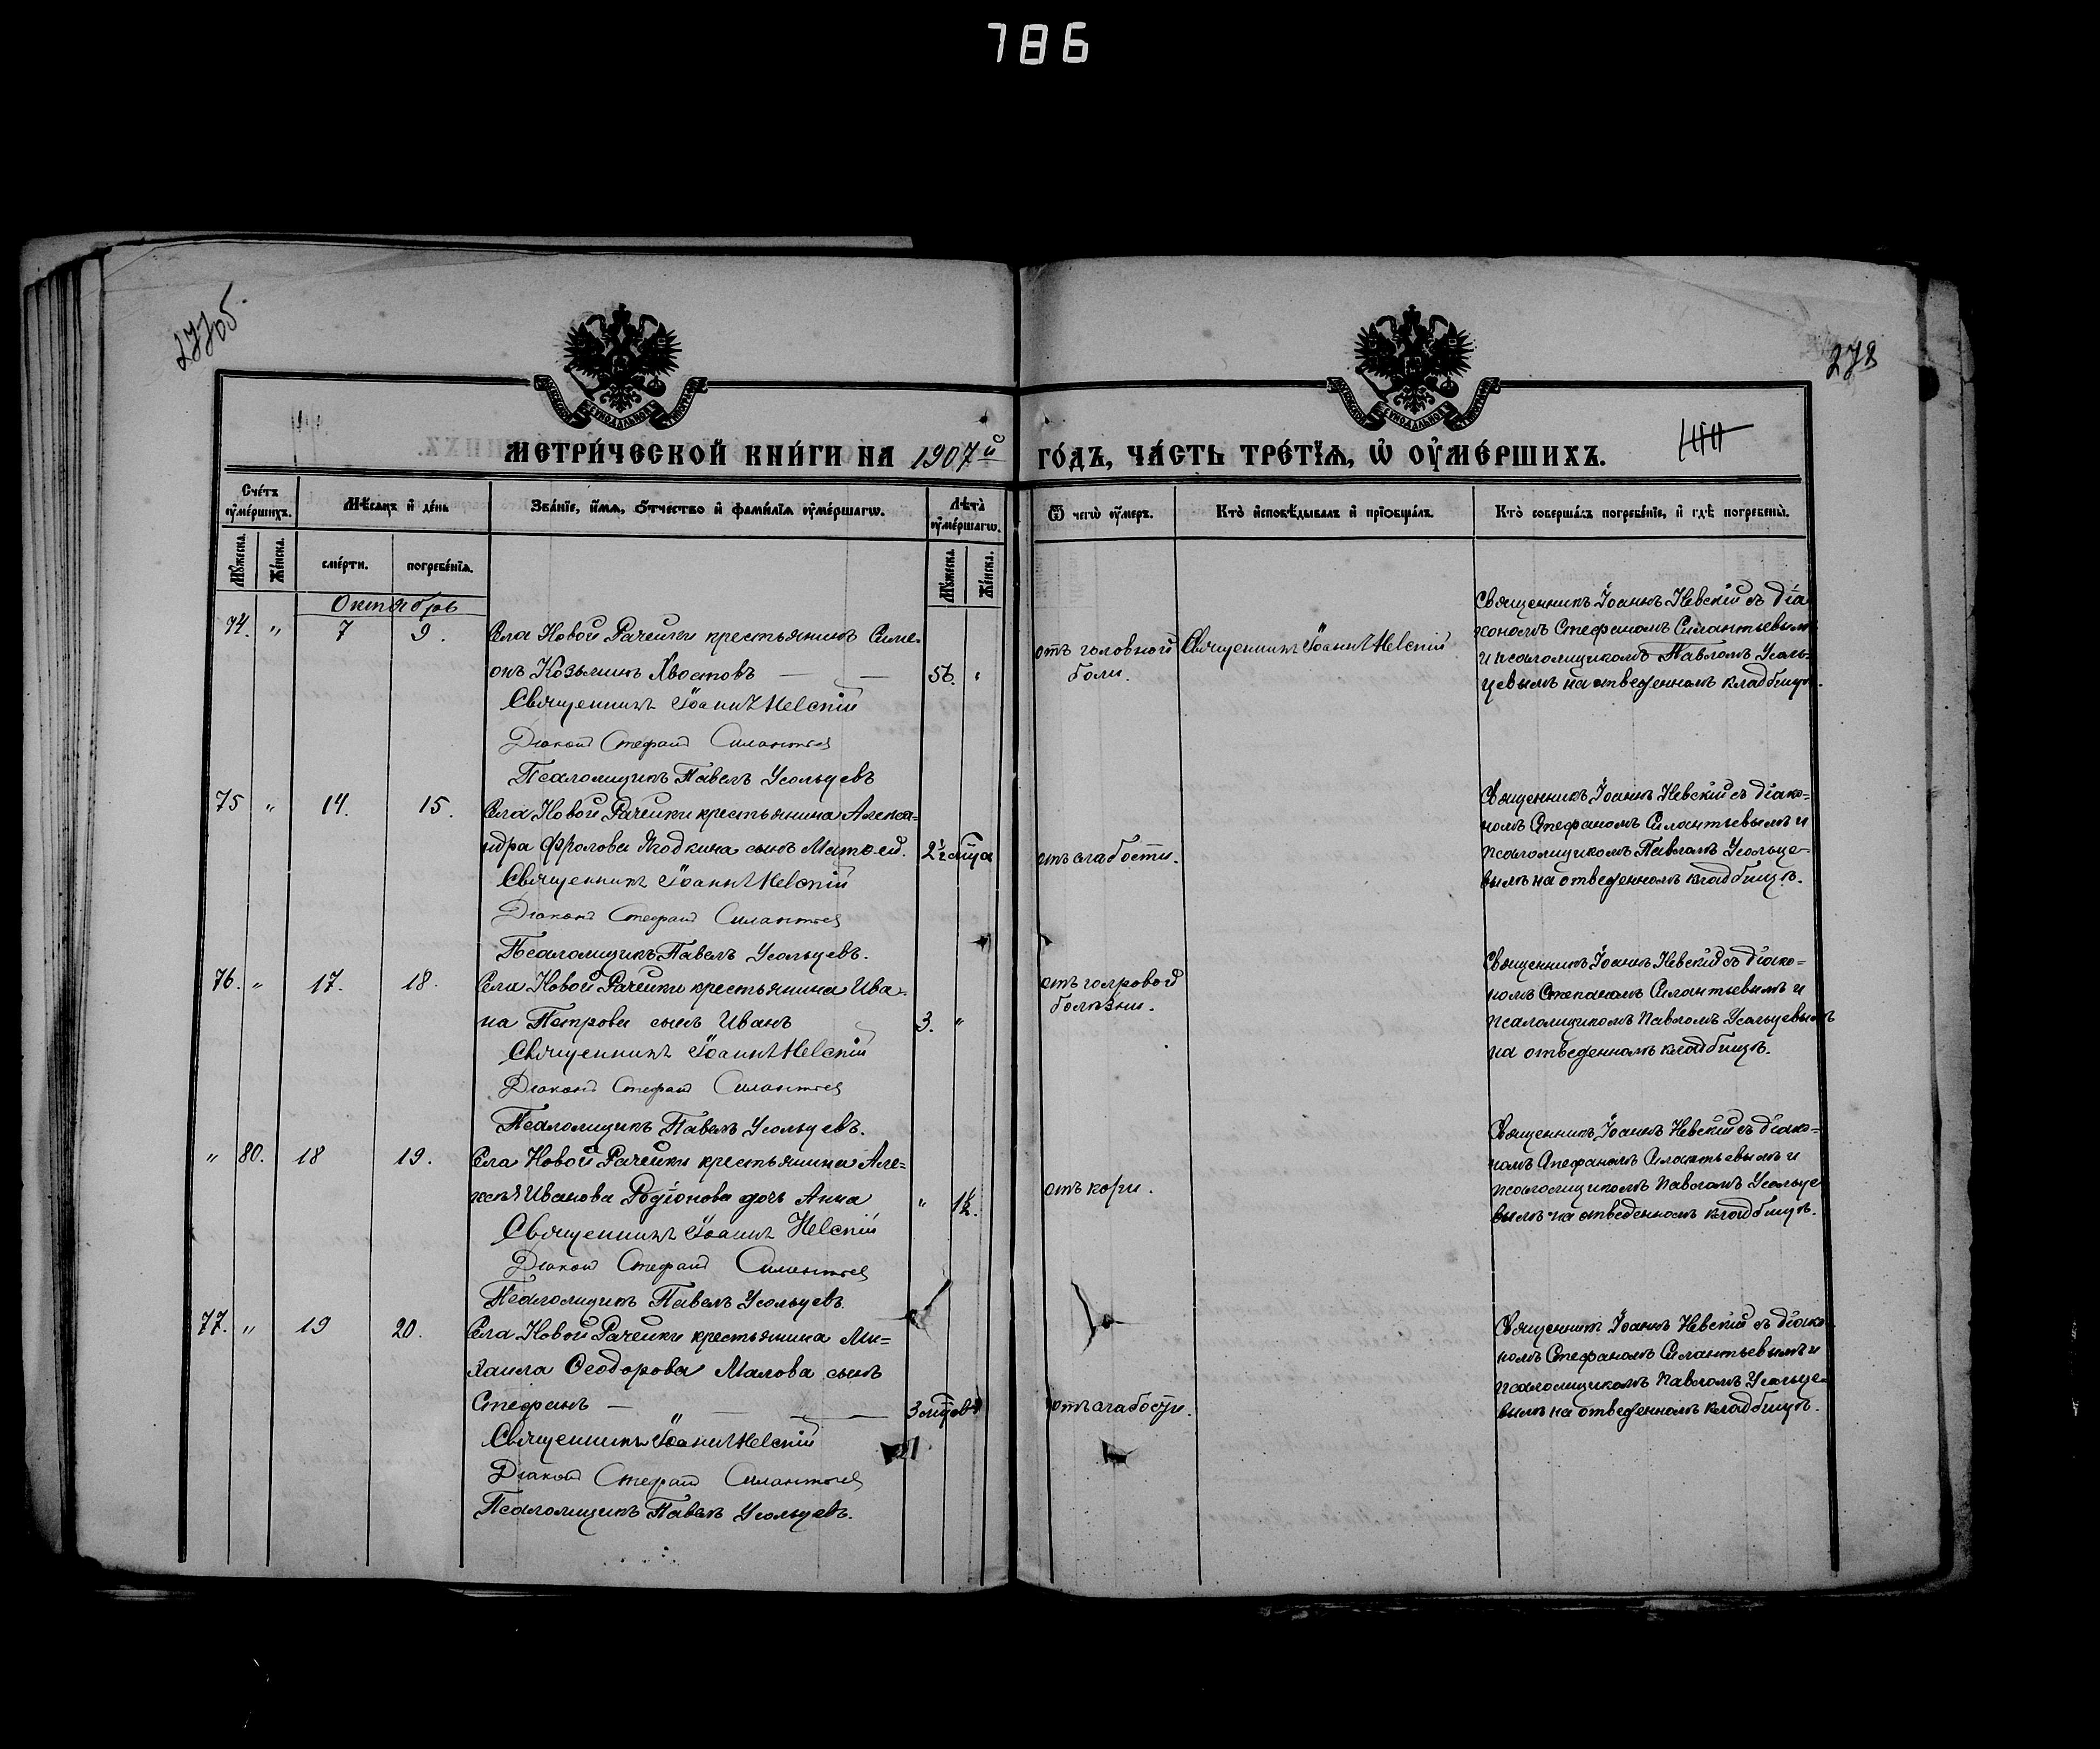 786
277об.
278
МЕТРИ́ЧЕСКОЙ КНИ́ГИ НА 1907й ГО́ДЪ, ЧА́СТЬ ТРЕ́ТІѦ, Ѡ҆ ОУ҆МЕ́РШИХЪ.
Сче́тъ оу҆ме́ршихъ.
Мѣ́сяцъ и҆ де́нь
Зва́нїе, и҆́мѧ, ѻ҆́тчество и҆ фами́лїѧ оу҆ме́ршагѡ.
Лѣта̀ оу҆ме́ршагѡ.
Ѿ чегѡ̀ оу҆́меръ.
Кто̀ и҆сповѣ́дывалъ и҆ прїѻбща́лъ.
Кто̀ соверша́лъ погребе́нїе, и҆ гдѣ̀ погребены̀.
Мꙋ́жеска.
Же́нска.
сме́рти.
погребе́нїѧ.
Мꙋ́жеска.
Же́нска.
Октябрь
74. " 7 9. Села Новой Рачейки крестьянинъ Симе-
онъ Козьминъ Хвостовъ — — 56. "
Священникъ Іоаннъ Невскій
Діаконъ Стефанъ Силантьев
Псаломщикъ Павелъ Усольцевъ
отъ головной
боли.
Священникъ Іоаннъ Невскій
Священникъ Іоаннъ Невскій съ діа-
кономъ Стефаномъ Силантьевымъ
и псаломщикомъ Павломъ Усоль-
цевымъ на отведенномъ кладбищѣ.
75 " 14. 15. Села Новой Рачейки крестьянина Алекса-
ндра Фролова Ягодкина сынъ Матѳей. 2½ мѣца
Священникъ Іоаннъ Невскій
Діаконъ Стефанъ Силантьев
Псаломщикъ Павелъ Усольцевъ.
отъ слабости.
Священникъ Іоаннъ Невскій съ діако-
номъ Стефаномъ Силантьевымъ и
псаломщикомъ Павломъ Усольце-
вымъ на отведенномъ кладбищѣ.
76. " 17. 18. Села Новой Рачейки крестьянина Ива-
на Петрова сынъ Иванъ 3. "
Священникъ Іоаннъ Невскій
Діаконъ Стефанъ Силантьев
Псаломщикъ Павелъ Усольцевъ.
отъ горловой
болѣзни.
Священникъ Іоаннъ Невскій съ діако-
номъ Степаномъ Силантьевымъ и
псаломщикомъ Павломъ Усольцевымъ
на отведенномъ кладбищѣ.
" 80. 18 19. Села Новой Рачейки крестьянина Але-
ксѣя Иванова Родіонова дочь Анна " 1½.
Священникъ Іоаннъ Невскій
Діаконъ Стефанъ Силантьев
Псаломщикъ Павелъ Усольцевъ.
отъ кори.
Священникъ Іоаннъ Невскій съ діако-
номъ Стефаномъ Силантьевымъ и
псаломщикомъ Павломъ Усольце-
вымъ на отведенномъ кладбищѣ.
77. " 19 20. Села Новой Рачейки крестьянина Ми-
хаила Ѳеодорова Малова сынъ
Стефанъ — — — 3 мѣцев
Священникъ Іоаннъ Невскій
Діаконъ Стефанъ Силантьев
Псаломщикъ Павелъ Усольцевъ.
отъ слабости.
Священникъ Іоаннъ Невскій съ діако-
номъ Стефаномъ Силантьевымъ и
псаломщикомъ Павломъ Усольце-
вымъ на отведенномъ кладбищѣ.